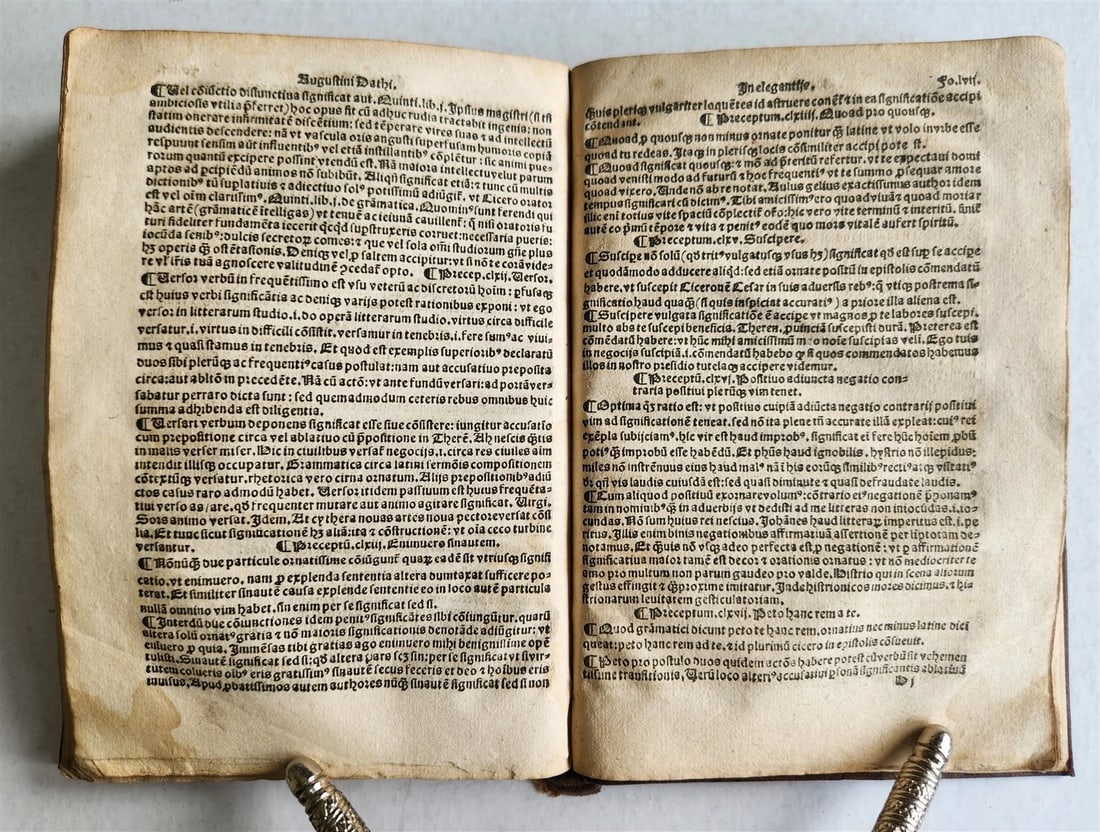 Augustini Dathi.
¶Uel cōiūctio disiunctiua significat aut. Quinti.lib.j. Ipsius magistri (si
ambiciosis vtilia p̄ferret) hoc opus sit cū adhuc rudia tractabit ingenia: non
statim onerare infirmitatē discentium: sed tēperare vires suas ⁊ ad intellectū
audientis descendere: nā vt vascula oris angusti superfusam humoris copiā
respuunt sensim aūt influentibꝰ vel etiā instillantibꝰ cōplētur: sic animi pue-
rorum quantū excipere possint vtendū est. Nā maiora intellectu velut parum
aptos ad ꝑcipiēdū animos nō subibūt. Aliqñ significat etiā: ⁊ tunc cū multis
dictionibꝰ tū suplatiuis ⁊ adiectiuo solꝰ potissimū adiūgit. vt Cicero orator
est vel oīm clarissimꝰ. Quinti.lib.j. de grāmatica. Quominꝰ sunt ferendi qui
hāc artē (grāmaticē ītelligas) vt tenuē ac ieiunā cauillent: q̄ nisi oratoris fu
turi fideliter fundamēta iecerit qcqd supstruxeris corruet: necessaria pueris:
iocūda senibꝰ: dulcis secretoꝝ comes: ⁊ que vel sola oīni studiorum gn̄e plus
hꝫ operis q̄ȝ ostētationis. Deniqȝ vel ꝓ saltem accipitur: vt si nō te corā vide-
re vr̄ fris tua agnoscere valitudinē ꝓcedat opto. ¶Precep.clxij. Uersor.
¶Uersor verbū in frequētissimo est vsu veterū ac discretorū hoīm: ꝓfusaqȝ
est huius verbi significātis ac deniqȝ varijs potest rationibus exponi: vt ego
versor in litterarum studio.i.do operā litterarum studio. virtus circa difficile
versatur.i.virtus in difficili cōsistit. versamur in tenebris.i.fere sumꝰ ac viui-
mus ⁊ quasi stamus in tenebris. Et quod est exemplis superioribꝰ declaratū
duos sibi plerūqȝ ac frequentiꝰ casus postulat: nam aut accusatiuo preposita
circa: aut abltōm in precedēte. Nā cū actō: vt ante fundū versari: ad portā ver-
sabatur perraro dicta sunt: sed quemadmodum ceteris rebus omnibus huic
summa adhibenda est diligentia.
¶Uersari verbum deponens significat esse siue cōsistere: iungitur accusatio
cum prepositione circa vel ablatiuo cū p̄positione in Therē. Ah nescis q̄tis
in malis verser miser. Dic in ciuilibus versaf negocijs.i.circa res ciuiles aīm
intendit illisqȝ occupatur. Grammatica circa latini sermōis compositionem
cōtextūqȝ versatur. rhetorica vero circa ornatum. Alijs prepositionibꝰ adiū
ctos casus raro admodū habet. Uersor itidem passiuum est huius frequēta-
tiui verso as/are. qd frequenter mutare aut animo agitare significat. Uirgi.
Sors animo versat. Idem. At cythera nouas artes noua pectore versat cōsi
lia. Et tunc sicut significationē hꝫ aliā: ita ⁊ cōstructionē: vt oīa ceco turbine
versantur. ¶Preceptū.clxiij. Enimuero sinautem.
¶Nōnūqȝ due particule ornatissime cōiūgunt quaꝝ eadē sit vtriusqȝ signifi
catio. vt enimuero. nam ꝓ explenda sententia altera dumtaxat sufficere po-
terat. Et similiter sinautē causa explende sententie eo in loco autē particula
nullā omnino vim habet. sin enim per se significat sed si.
¶Interdū due cōiunctiones idem penitꝰ significātes sibi cōiungūtur. quarū
altera solū ornatꝰ gratia ⁊ nō maioris significationis denotāde adiūgitur: vt
enīuero ꝓ quia. Immēsas tibi gratias ago enimuero mihi benignissime opē
tulisti. Sinautē significat sed si: qd altera pars scꝫ sin: per se significat vt si vir-
tutem colueris oībꝰ eris gratissimꝰ sinautē secus feceris et deo ⁊ hoībus eris
inuisus. Apud ꝓbatissimos autem authores nūqȝ sinautē significat sed si non
In elegantijs.
Fo.lvij.
quis pleriqȝ vulgariter loquētes id astruere conēt ⁊ in ea significatiōe accipi
cōtendant. ¶Preceptum.clxiiij. Quoad pro quousqȝ.
¶Quoad ꝓ quousqȝ non minus ornate ponitur q̄ȝ latine vt volo in vrbe esse
quoad tu redeas. Itaqȝ in plerisqȝ locis cōsimiliter accipi potest.
¶Quoad significat quousqȝ: ⁊ mō ad p̄teritū refertur. vt te expectaui domi
quoad venisti modo ad futurū ⁊ hoc frequentiꝰ vt te summo ꝓsequar amore
quoad vixero. Unde nō ab re notat. Aulus gelius exactissimus author idem
tempus significari cū dicimꝰ. Tibi amicissimꝰ ero quoad viuā ⁊ quoad moriar
illic eni totius vite spaciū cōplectit ofo: hic vero vite terminū ⁊ interitū.
autē eo p̄mū tēpore ⁊ vita ⁊ penitꝰ eodē quo mors vitalē aufert spiritū.
¶Preceptum.clxv. Suscipere.
¶Suscipe nō solū (qd tritꝰ vulgatusqȝ vsus hꝫ) significat qd est sup se accipe
et quodāmodo adducere aliqd: sed etiā ornate positū in epistolis cōmendatū
habere. vt suscepit Ciceronē Cesar in suis aduersis rebꝰ: q̄ vtiqȝ postrema si-
gnificatio haud quaqȝ (si quis inspiciat accuratiꝰ) a priore illa aliena est.
¶Suscipere vulgata significatiōe ē accipe vt magnos ꝓ te labores suscepi.
multo abs te suscepi beneficia. Theren. ꝓuinciā suscepisti durā. Preterea est
cōmēdatū habere: vt hūc mihi amicissimū noīe suscipias veli. Ego tuis
in negocijs suscipiā.i.cōmēdatū habebo ꝙ si quos commendatos habemus
illos in nostro presidio tutelaqȝ accipere videmur.
¶Preceptū.clxvj. Positiuo adiuncta negatio con-
traria positiui plerūqȝ vim tenet.
¶Optima qȝ ratio est: vt positiuo cuipiā adiūcta negatio contrarij positiui
vim ad significationē teneat. sed nō ita plene tn̄ accurate illā expleat: cuiꝰ rei
exēpla subijciam. hic vir est haud improbꝰ. significat ei fere hūc hoīem ꝓbū
potiꝰ q̄ȝ improbū esse habēdū. Et phūs haud ignobilis. hystrio nō illepidus:
miles nō instrēnuus eius haud malꝰ
dr̄ qn̄ vis laudis cuiusdā est: sed quasi diminute ⁊ quasi defraudate laudis.
¶Cum aliquod positiuū exornare volumꝰ: cōtrario ei ⁊ negationē p̄ponamꝰ
tam in nominibꝰ q̄ȝ in aduerbijs vt dedisti ad me litteras non iniocūdas.i.io-
cundas. Nō sum huius rei nescius. Johānes haud litteraꝝ imperitus est.i.pe
ritus. Illis enim binis negationibus affirmatiuā assertionē per liptotam de-
notamus. Et q̄uis nō vsqȝ adeo perfecta est ꝓ negationē: vt ꝑ affirmationē
significatiua maior tamē est decor ⁊ orationis ornatus: vt nō mediocriter te
amo pro multum non parum gaudeo pro valde. Histrio qui in scena aliorum
gestus effingit ⁊ q̄ȝproxime imitatur. Inde histrionicos mores dicimus. ⁊ his
strionarum leuitatem gesticulatoriam.
¶Preceptum.clxvij. Peto hanc rem a te.
¶Quod grāmatici dicunt peto te hanc rem. ornatius nec minus latine dici
queat: peto hanc rem ad te. ⁊ id plurimū cicero in epistolis cōsueuit.
¶Peto pro postulo duos quidem actōs habere potest cū verbū sit vehemen
tissime transitionis. Uerū loco alteriꝰ accusatiui ꝑsonā significantis ablatiuū
H j